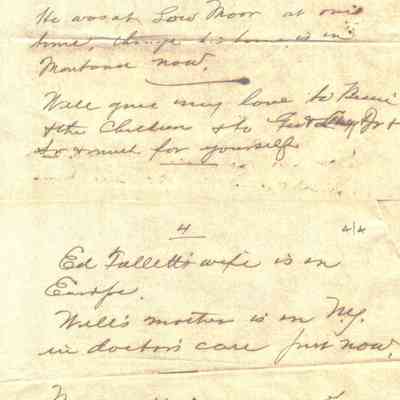 He was at Low Moor at one
time, though his home is in
Montana now.
Well give my love to Bessie
& the Children & to Jr &
Sr & much for yourself.
4
4/4
Ed Tallett's wife is in
Europe.
Will's mother is in N.Y.
in doctor's care just now.